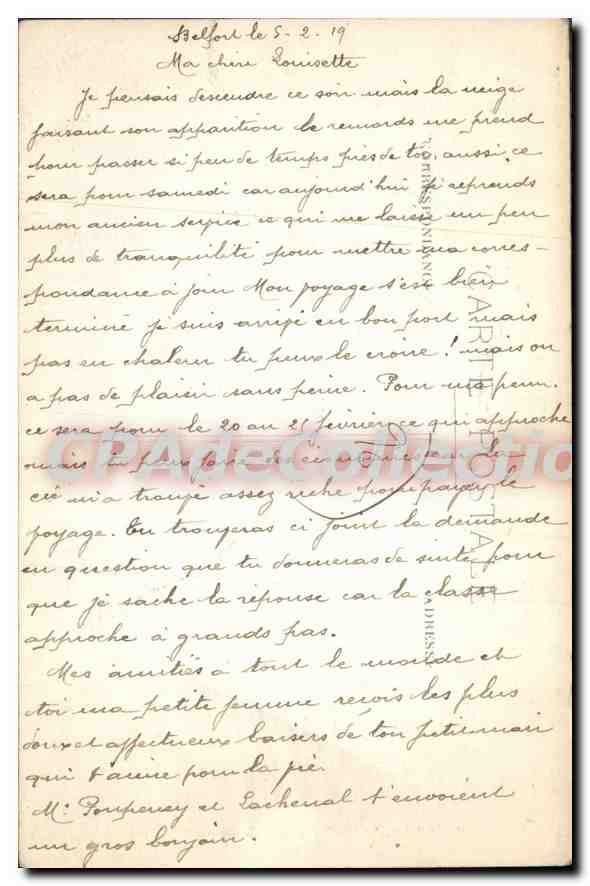 Belfort le 5-2-19
Ma chère Louisette
Je pensais descendre ce soir mais la neige
faisant son apparition le remords me prend
pour passer si peu de temps près de toi, aussi ce
sera pour samedi car aujourd'hui je reprends
mon ancien service ce qui me laisse un peu
plus de tranquilité pour mettre ma corres-
pondance à jour Mon voyage s'est bien
terminé je suis arrivé en bon port mais
pas en chaleur tu peux le croire! mais on
a pas de plaisir sans peine. Pour ma perm.
ce sera pour le 20 au 25 février ce qui approche
mais tu peux faire des car la
cie m'a trouvé assez riche pour payer le
voyage. Tu trouveras ci joint la demande
en question que tu donneras de suite pour
que je sache la réponse car la classe
approche à grands pas.
Mes amitiés à tout le monde et
toi ma petite femme reçois les plus
doux et affectueux baisers de ton petit mari
qui t'aime pour la vie
Mr Pompeney et Lachenal t'envoient
un gros bonjour.
CARTE POSTALE
CORRESPONDANCE
ADRESSE
CPADeCollection